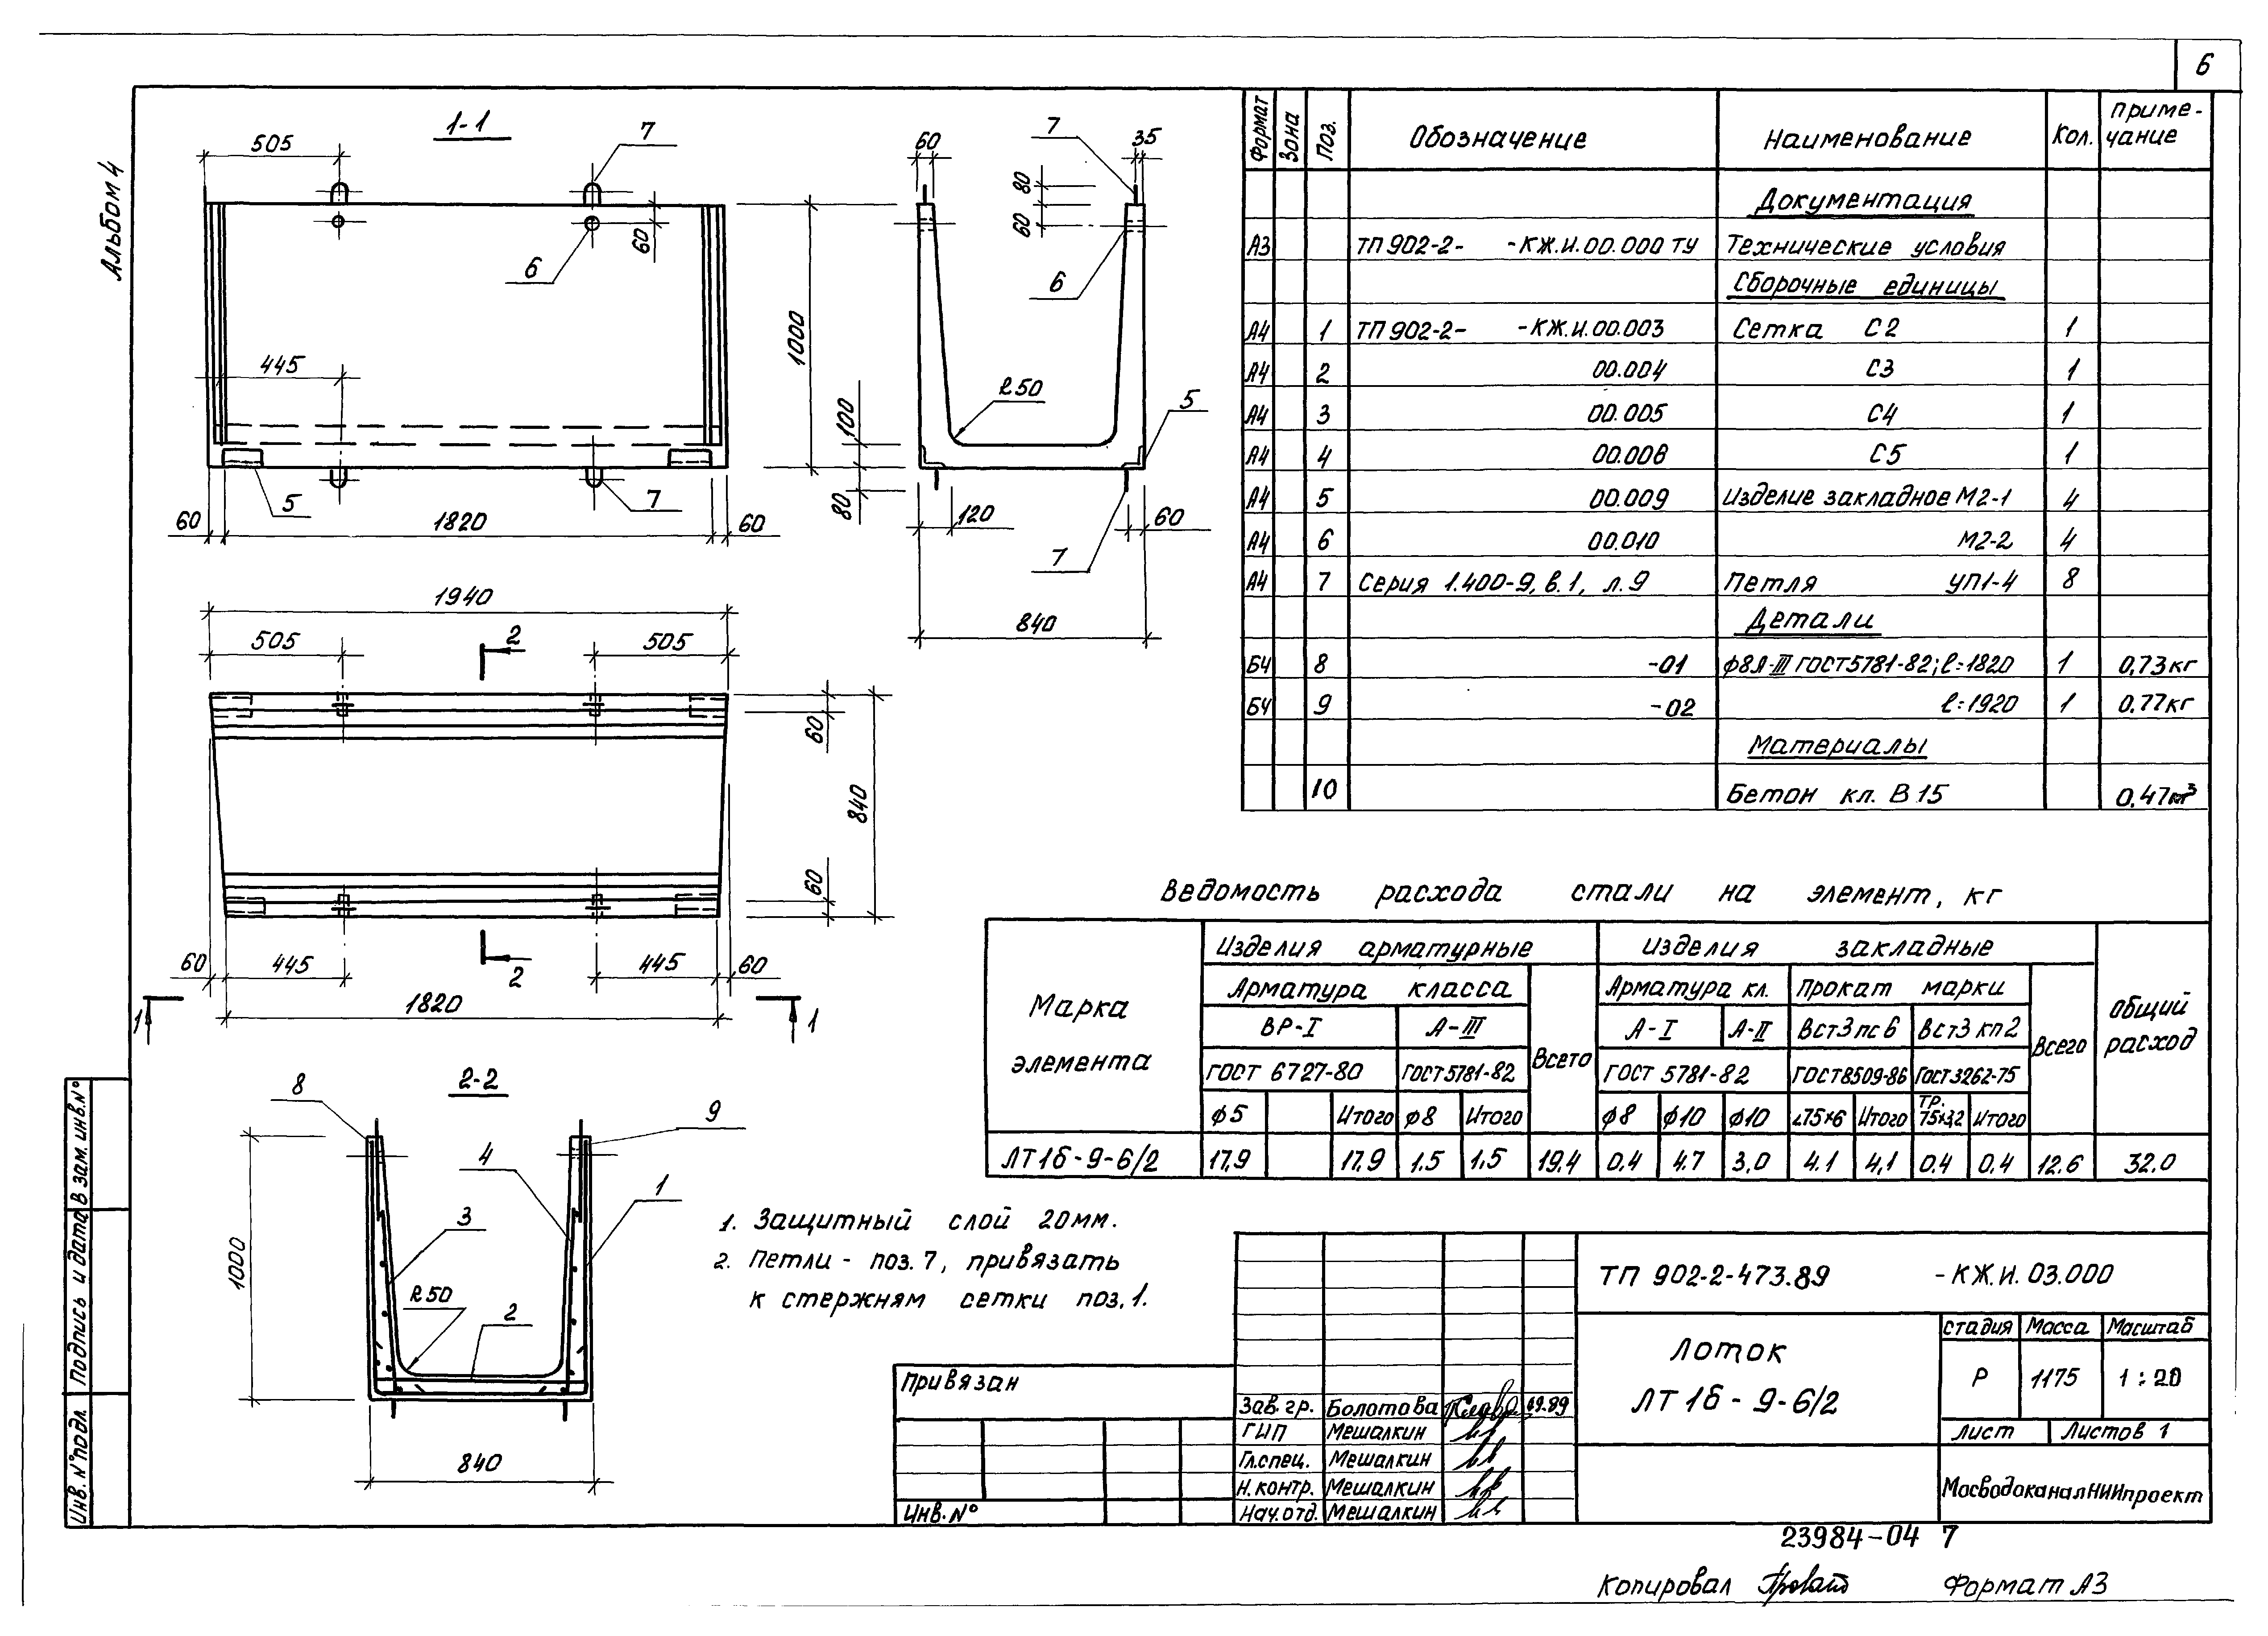 6
Альбом 4
1-1
505
7
6
60
445
5
7
60
1820
60
1000
60
7
35
80
60
6
R50
5
100
80
120
60
7
840
1940
505
2
505
60
840
60
60
445
2
445
60
1
1820
1
2-2
8
9
4
1
3
1000
R50
2
840
Формат Зона Поз. Обозначение Наименование Кол. Приме-чание
Документация
А3 ТП 902-2- -КЖ.И.00.000 ТУ Технические условия
Сборочные единицы
А4 1 ТП 902-2- -КЖ.И.00.003 Сетка С2 1
А4 2 00.004 С3 1
А4 3 00.005 С4 1
А4 4 00.008 С5 1
А4 5 00.009 Изделие закладное М2-1 4
А4 6 00.010 М2-2 4
А4 7 Серия 1.400-9, в.1, л.9 Петля УП1-4 8
Детали
БЧ 8 -01 ф8А-III ГОСТ5781-82; ℓ=1820 1 0,73кг
БЧ 9 -02 ℓ=1920 1 0,77кг
Материалы
10 Бетон кл. В 15 0,47м³
Ведомость расхода стали на элемент, кг
Марка элемента
Изделия арматурные Изделия закладные Общий расход
Арматура класса Всего Арматура кл. Прокат марки Всего
ВР-I А-III А-I А-II Вст3пс6 Вст3кп2
ГОСТ 6727-80 ГОСТ5781-82 ГОСТ 5781-82 ГОСТ8509-86 ГОСТ3262-75
ф5 Итого ф8 Итого ф8 ф10 ф10 ∟75×6 Итого ТР. 75×3,2 Итого
ЛТ1б-9-6/2 17,9 17,9 1.5 1,5 19,4 0.4 4.7 3,0 4.1 4,1 0.4 0.4 12.6 32.0
1. Защитный слой 20мм.
2. Петли - поз. 7, привязать
к стержням сетки поз. 1.
В зам. инв.N°
Подпись и дата
Инв. N° подл.
Привязан
Инв. N°
Зав. гр. Болотова 09.89
ГИП Мешалкин
Гл.спец. Мешалкин
Н.контр. Мешалкин
Нач.отд. Мешалкин
ТП 902-2-473.89 -КЖ.И. 03.000
Лоток
ЛТ 1б - 9-6/2
Стадия Масса Масштаб
Р 1175 1:20
Лист Листов 1
МосводоканалНИИпроект
23984-04 7
Копировал Формат А3